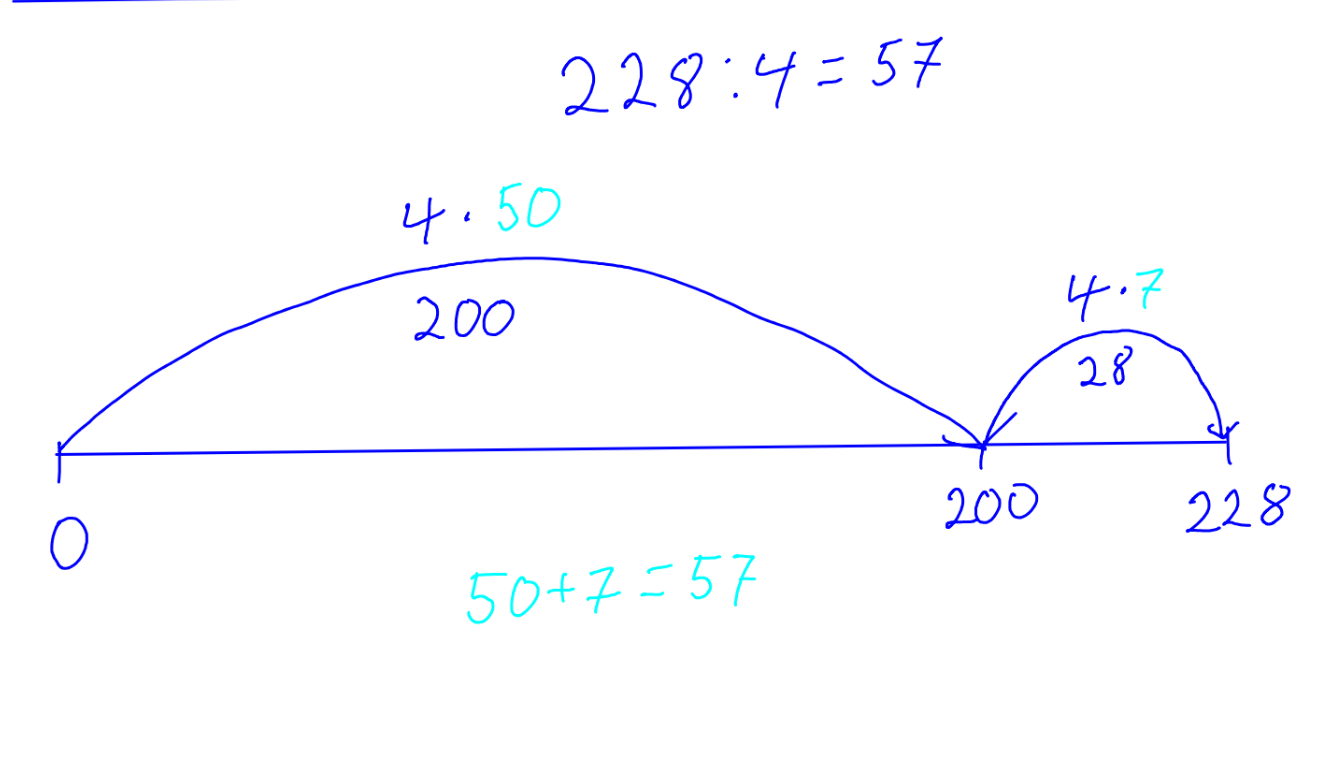 228:4=57
4·50
200
4·7
28
0
200
228
50+7=57